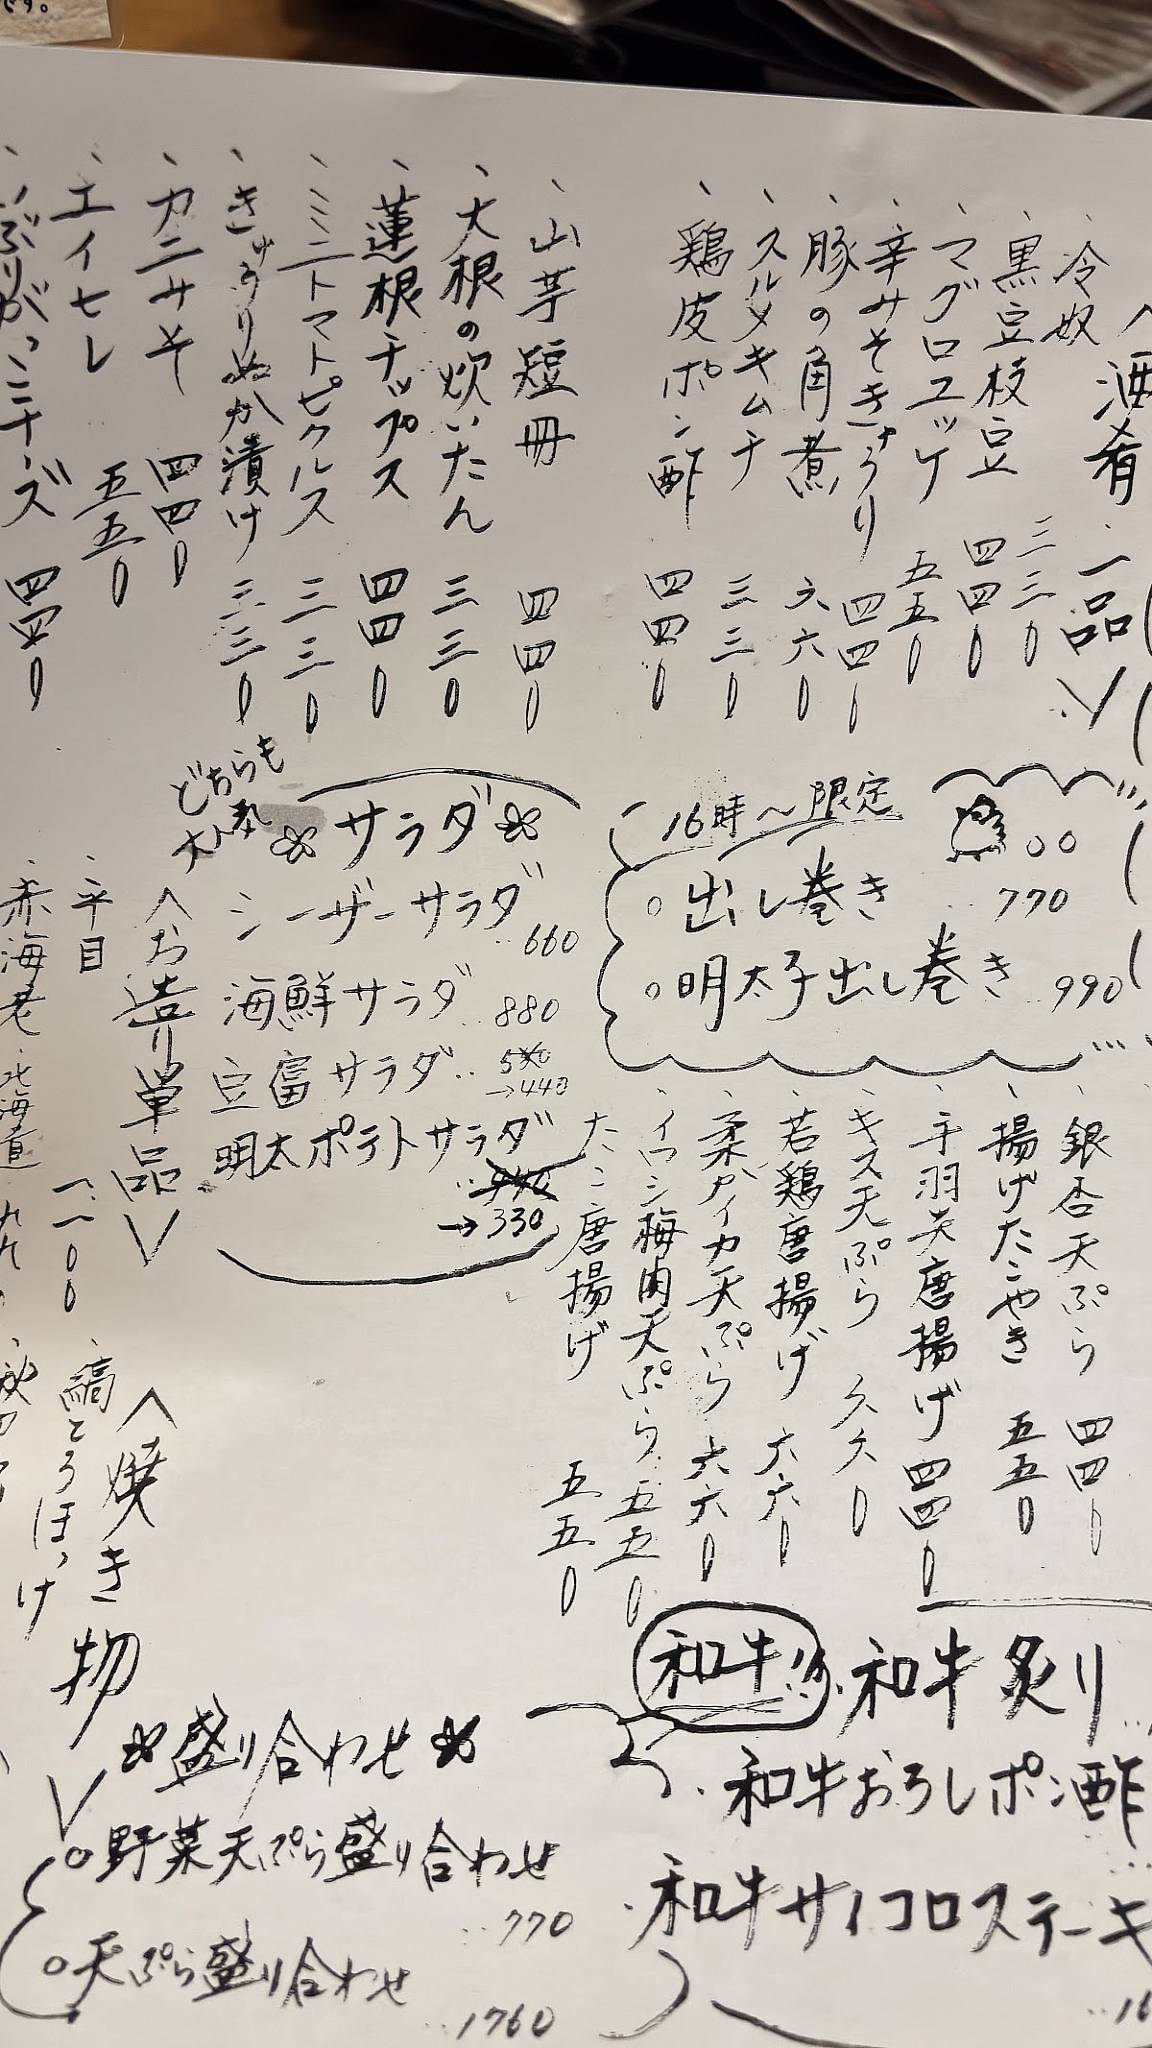 です。
＜酒肴・一品＞
、冷奴 三三〇
、黒豆枝豆 四四〇
、マグロユッケ 五五〇
、辛みそきゅうり 四四〇
、豚の角煮 六六〇
、スルメキムチ 三三〇
、鶏皮ポン酢 四四〇
、山芋短冊 四四〇
、大根の炊いたん 三三〇
、蓮根チップス 四四〇
、ミニトマトピクルス 三三〇
、きゅうりぬか漬け 三三〇
、カニみそ 四四〇
、エイヒレ 五五〇
、いぶりがっこチーズ 四四〇
16時〜限定
○出し巻き ‥770
○明太子出し巻き ‥990
どちらも
サラダ
シーザーサラダ ‥660
海鮮サラダ ‥880
豆富サラダ ‥
→440
明太ポテトサラダ
→330
＜お造り単品＞
、平目 一一〇〇
、赤海老 北海道 九九
、銀杏天ぷら 四四〇
、揚げたこやき 五五〇
、手羽先唐揚げ 四四〇
、キス天ぷら 六六〇
、若鶏唐揚げ 六六〇
、柔かイカ天ぷら 六六〇
、イワシ梅肉天ぷら 五五〇
たこ唐揚げ 五五〇
＜焼き物＞
、縞とろほっけ
和牛
・和牛炙り
・和牛おろしポン酢
・和牛サイコロステーキ
‥16
盛り合わせ
○野菜天ぷら盛り合わせ
‥770
○天ぷら盛り合わせ
‥1760